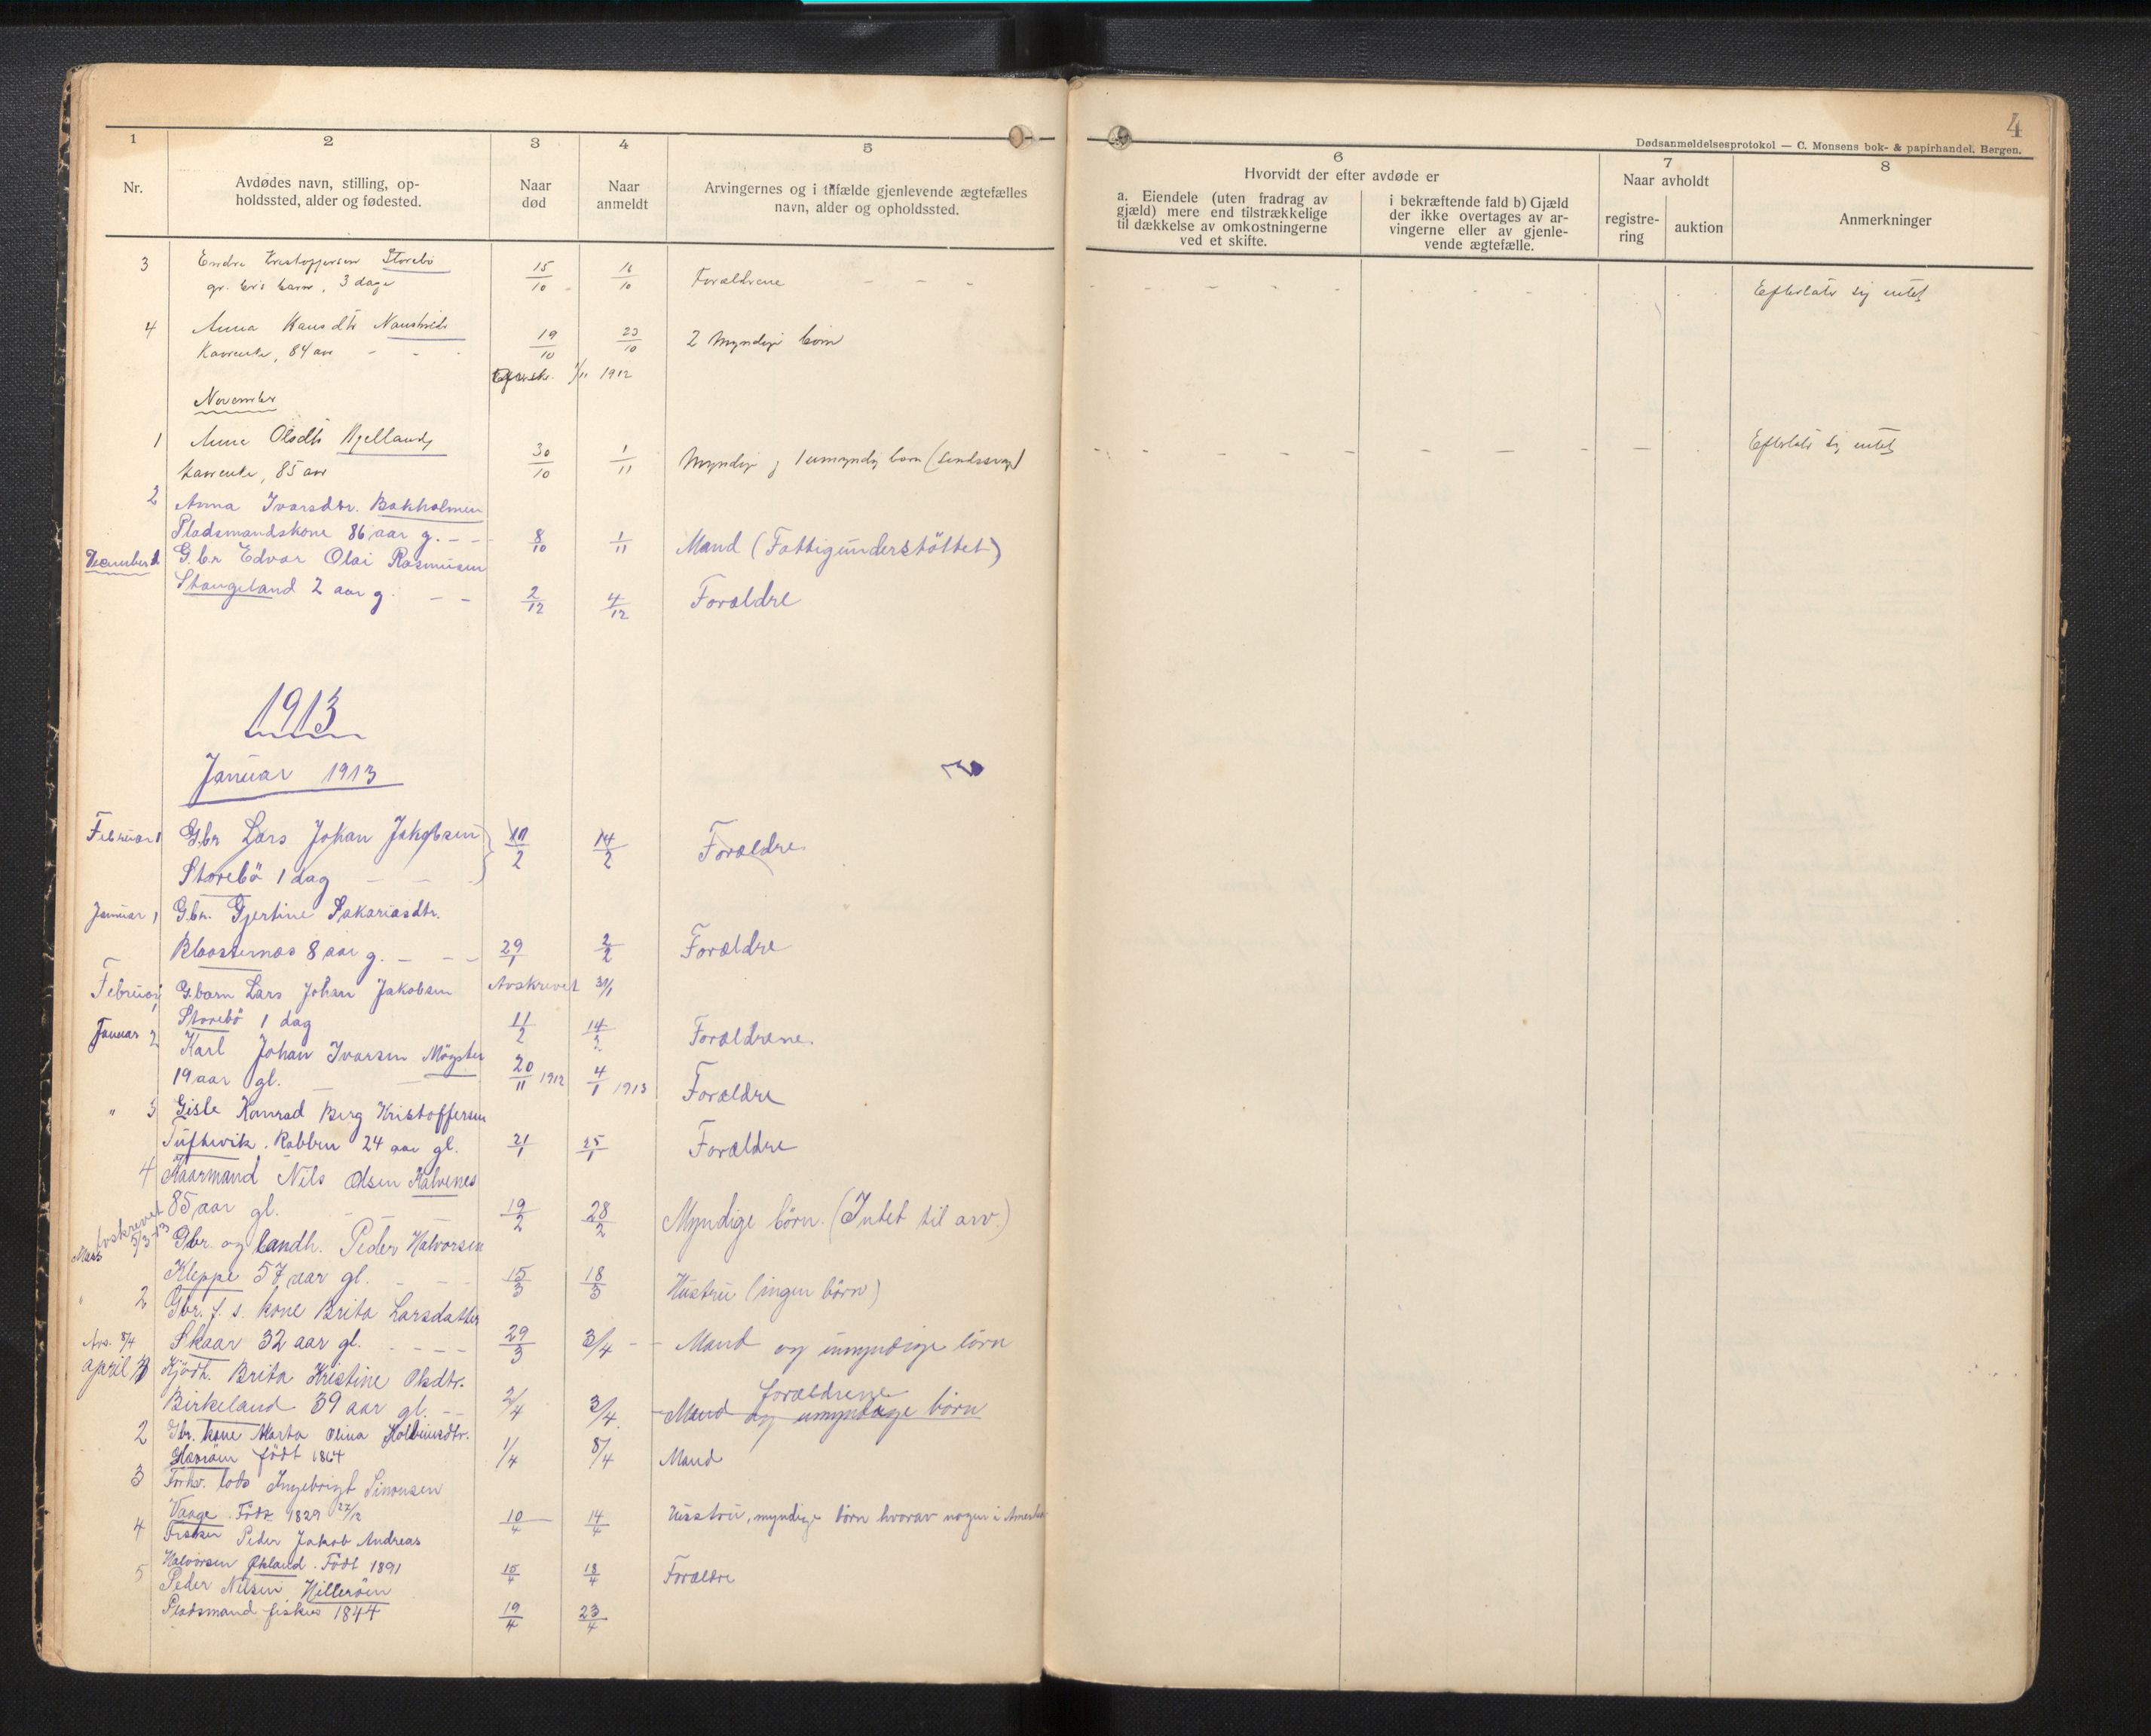 4
Dødsanmeldelsesprotokol — C. Monsens bok- & papirhandel. Bergen.
1 2 3 4 5 6 7 8
Nr.
Avdødes navn, stilling, op-
holdssted, alder og fødested.
Naar
død
Naar
anmeldt
Arvingernes og i tilfælde gjenlevende ægtefælles
navn, alder og opholdssted.
Hvorvidt der efter avdøde er
a. Eiendele (uten fradrag av
gjæld) mere end tilstrækkelige
til dækkelse av omkostningerne
ved et skifte.
i bekræftende fald b) Gjæld
der ikke overtages av ar-
vingerne eller av gjenle-
vende ægtefælle.
Naar avholdt
registre-
ring
auktion
Anmerkninger
3 Endre Kristoffersen Storebø
gr. br's barn, 3 dage 15/10 16/10 Forældrene Efterlater sig intet
4 Anna Hansdtr
Kaarenke, 84 aar 19/10 23/10 2 Myndige børn
1/11 1912
November
1 Anne Olsdtr Kjelland
Kaarenke, 85 aar 30/10 1/11 Myndige og 1 umyndig barn (sindssvag) Efterlater sig intet
2 Anna Ivarsdtr. Bakholmen
Pladsmandskone 86 aar g. 8/10 1/11 Mand (Fattigunderstöttet)
December 1 G.br. Edvar Olai Rasmusen
Stangeland 2 aar g. 2/12 4/12 Forældre
1913
Januar 1913
Februar 1 G.br. Lars Johan Jakobsen
Storebö 1 dag 10/2 14/2 Forældre
Januar 1 G.br. Gjertine Sakariasdtr.
Kloosternæs 8 aar g. 29/1 2/2 Forældre
Avskrevet 31/1
Februar 1 G.barn Lars Johan Jakobsen
Storebö 1 dag 11/2 14/2 Forældrene.
Januar 2 Karl Johan Ivarsen Mögster
19 aar gl. 20/11 1912 4/1 1913 Forældre
" 3 Gisle Konrad Berg Kristoffersen
Tuftevik. Robben 24 aar gl. 21/1 25/1 Forældre
4 Kaarmand Nils Olsen Kalvenes
85 aar gl. 19/2 28/2 Myndige börn. (Intet til arv.)
Avskrevet 5/3 13
Mars Gbr. og landh. Peder Halvorsen
Kleppe 57 aar gl. 15/3 18/3 Hustru (ingen börn)
" 2 Gbr. f. s. kone Brita Larsdatter
Skaar 32 aar gl. 29/3 3/4 Mand og umyndige börn
Avs. 8/4
April 1 Kjödt. Brita Kristine Olsdtr.
Birkeland 39 aar gl. 2/4 3/4 Mand og umyndige börn
forældrene
2 Gbr. kone Marta Olina Kolbeinsdtr.
födt 1864 1/4 8/4 Mand
3 Forhv. lods Ingebrigt Simonsen
Vaage. Födt 1829 27/12 10/4 14/4 Husstru, myndige börn hvorav nogen i Amerika
4 Fisker Peder Jakob Andreas
Halvorsen Økland. Födt 1891 15/4 18/4 Forældre
5 Peder Nilsen Hilleröen
Pladsmand fisker 1844 19/4 23/4